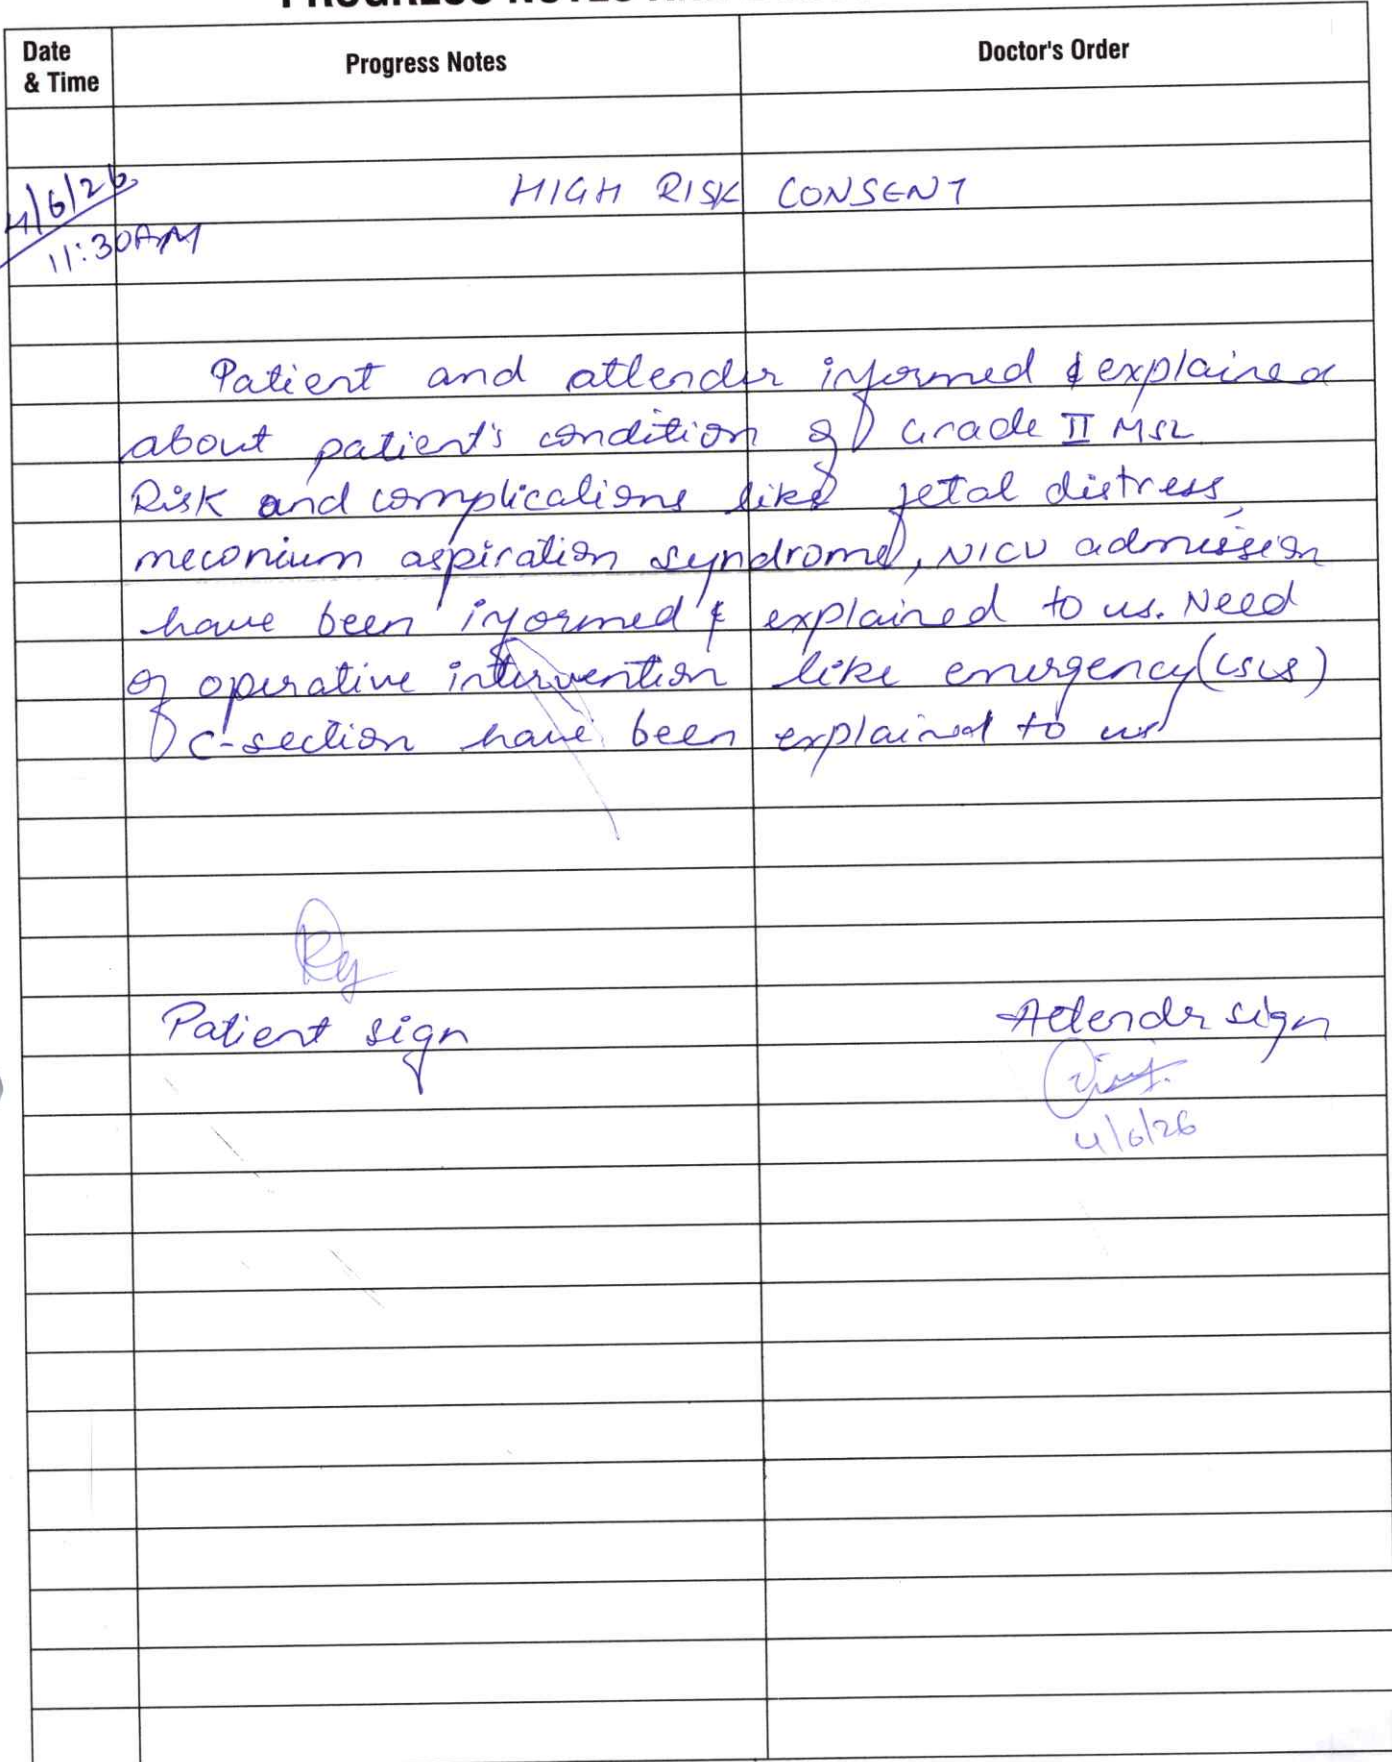 Date & Time Progress Notes Doctor's Order
4/6/26 HIGH RISK CONSENT
11:30AM
Patient and attender informed & explained
about patient's condition of Grade II MSL
Risk and complications like fetal distress,
meconium aspiration syndrome, NICU admission
have been informed & explained to us. Need
of operative intervention like emergency (LSCS)
C-section have been explained to us
Patient sign Attender sign
4/6/26